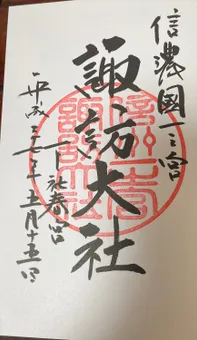 信濃國一之宮
諏訪大社
下社春宮
平成三十年五月十五日